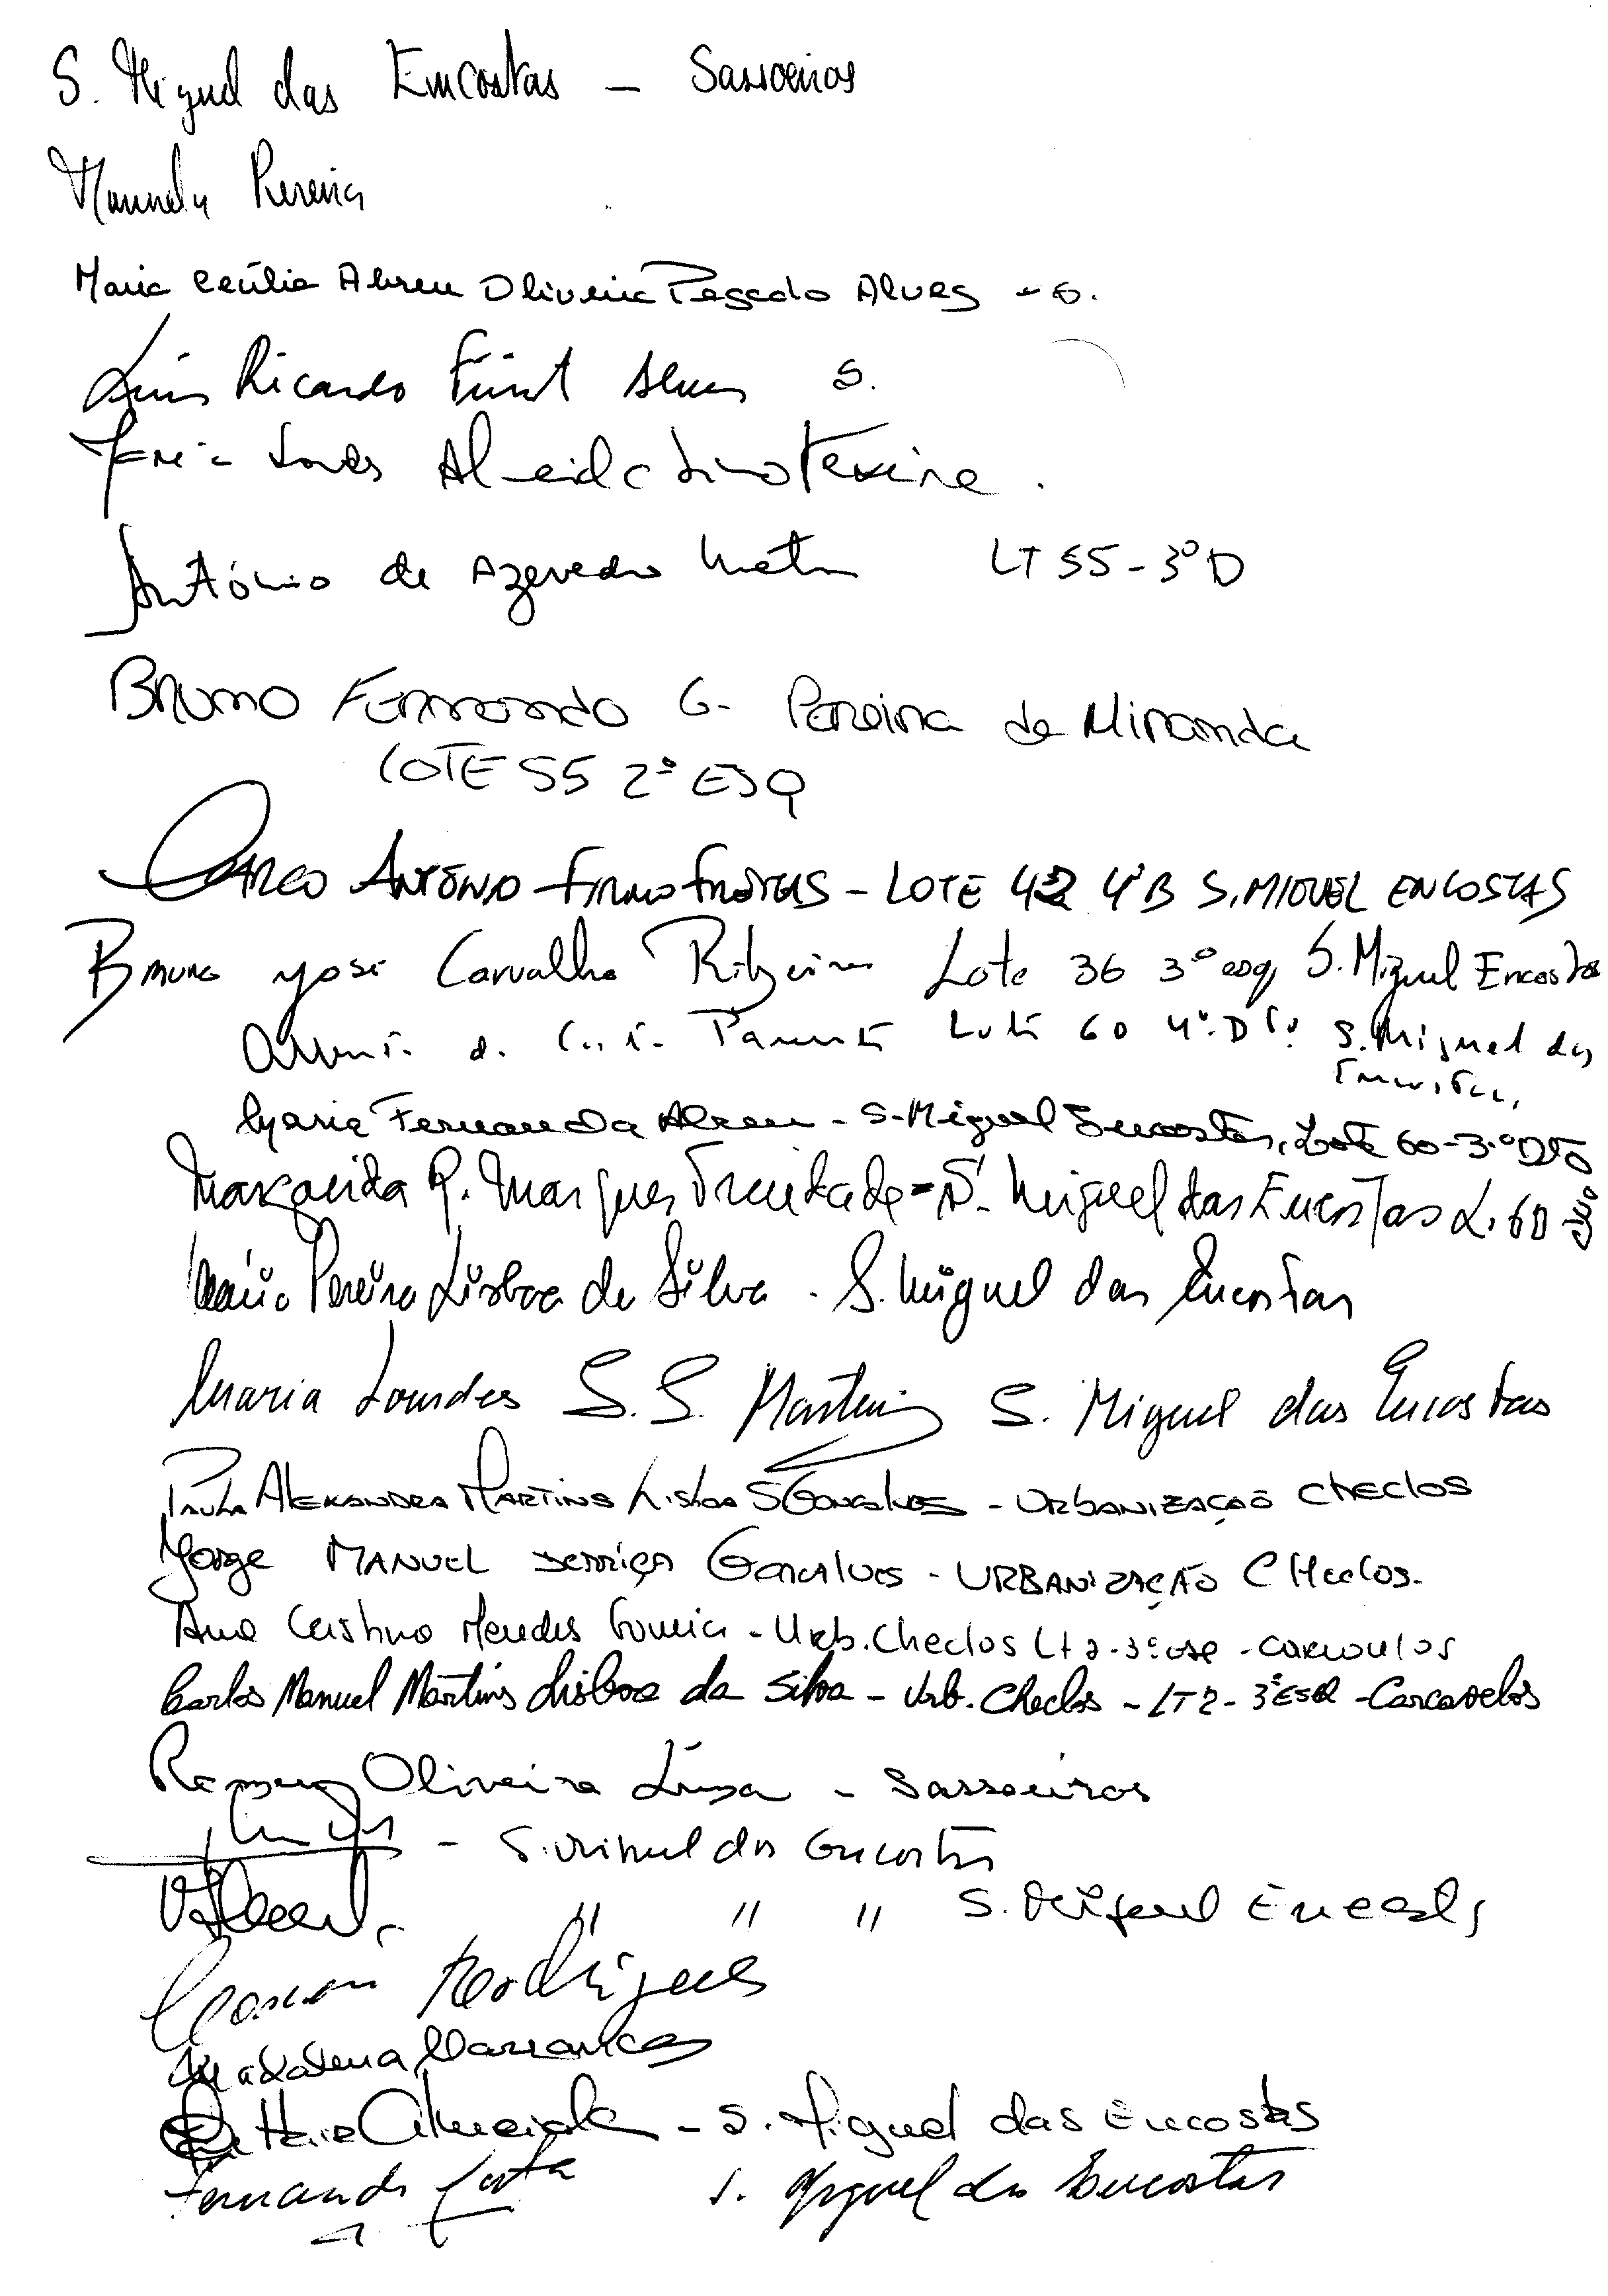 S. Miguel das Encostas – Sassoeiros
Manuela Pereira
Maria Cecília Abreu Oliveira Pegado Alves - S.
Luís Ricardo Fürst Alves S.
Almeida Lino Texeira.
António de Azevedo LT 55 - 3º D
Bruno Fernando G. Pereira de Miranda
LOTE 55 2º ESQ
Marco António Firmo Freitas – LOTE 42 4ºB S. MIGUEL ENCOSTAS
Bruno José Carvalho Ribeiro Lote 36 3º esq, S. Miguel Encostas
Lote 60 4º. Dto S. Miguel das
Encostas,
Maria Fernanda Abreu - S. Miguel Encostas, Lote 60 - 3.º DTO
Margarida R. Marques Trindade = S. Miguel das Encostas L. 60
Mário Pereira Lisboa da Silva - S. Miguel das Encostas
Maria Lourdes S. S. Martins S. Miguel das Encostas
Paula Alexandra Martins Lisboa S Gonçalves - Urbanização Checlos
Jorge MANUEL Serriça Gonçalves - URBANIZAÇÃO CHeclos.
Ana Cristina Mendes - Urb. Checlos Lt 2 - 3º esq - Carcavelos
Carlos Manuel Martins Lisboa da Silva - Urb. Checlos - LT 2 - 3º ESQ - Carcavelos
Oliveira Lima - Sassoeiros
- S. Miguel das Encostas
" " " S. Miguel Encostas
Rodrigues
Madalena
Almeida - S. Miguel das Encostas
Fernando Costa S. Miguel das Encostas